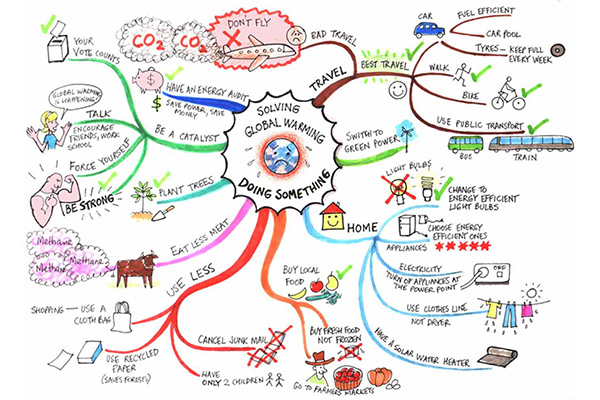 SOLVING
GLOBAL WARMING
DOING SOMETHING
TRAVEL
BAD TRAVEL
DON'T FLY
CO2
CO2
BEST TRAVEL
CAR
FUEL EFFICIENT
CAR POOL
TYRES - KEEP FULL
EVERY WEEK
WALK
BIKE
USE PUBLIC TRANSPORT
BUS
TRAIN
SWITH TO
GREEN POWER
HOME
LIGHT BULBS
CHANGE TO
ENERGY EFFICIENT
LIGHT BULBS
APPLIANCES
CHOOSE ENERGY
EFFICIENT ONES
ELECTRICITY
TURN OF APPLIANCES AT
THE POWER POINT
OFF
USE CLOTHES LINE
NOT DRYER
HAVE A SOLAR WATER HEATER
BUY LOCAL
FOOD
BUY FRESH FOOD
NOT FROZEN
GO TO FARMERS MARKETS
USE LESS
CANCEL JUNK MAIL
HAVE
ONLY 2 CHILDREN
SHOPPING - USE A
CLOTH BAG
USE RECYCLED
PAPER
(SAVES FORESTS)
EAT LESS MEAT
Methane
Methane
Methane
PLANT TREES
BE A CATALYST
HAVE AN ENERGY AUDIT
SAVE POWER, SAVE
MONEY
$
$
YOUR
VOTE COUNTS
TALK
ENCOURAGE
FRIENDS, WORK
SCHOOL
GLOBAL WARMING
IS HAPPENING!
FORCE YOURSELF
BE STRONG